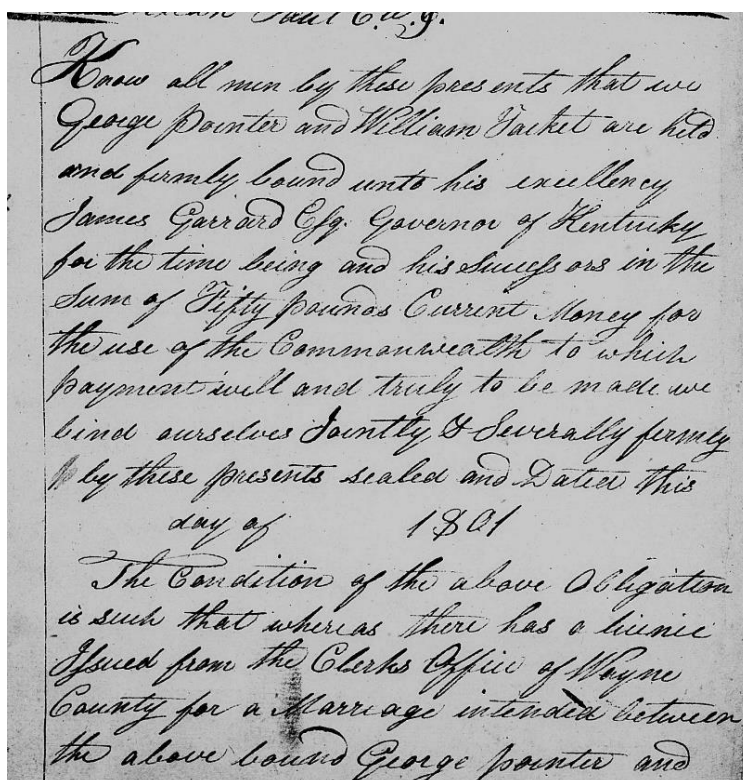 Paul C.W.J.
Know all men by these presents that we
George Pointer and William Tacket are held
and firmly bound unto his excellency
James Garrard Esq. Governor of Kentucky
for the time being and his Sucessors in the
Sum of Fifty pounds Current Money for
the use of the Commonwealth to which
payment well and truly to be made we
bind ourselves Jointly & Severally firmly
by these presents sealed and Dated this
day of 1801
The Condition of the above Obligation
is such that whereas there has a licence
Issued from the Clerks Office of Wayne
County for a Marriage intended between
the above bound George pointer and